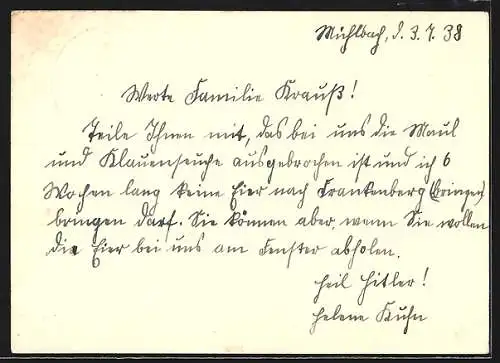 Michlbach, d. 3. 4. 38
Werte Familie Krauß!
Teile Ihnen mit, das bei uns die Maul
und Klauenseuche ausgebrochen ist und ich 6
Wochen lang keine Eier nach Frankenberg (bringen)
bringen darf. Sie können aber, wenn Sie wollen
die Eier bei uns am Fenster abholen.
Heil Hitler!
Helene Kuhn